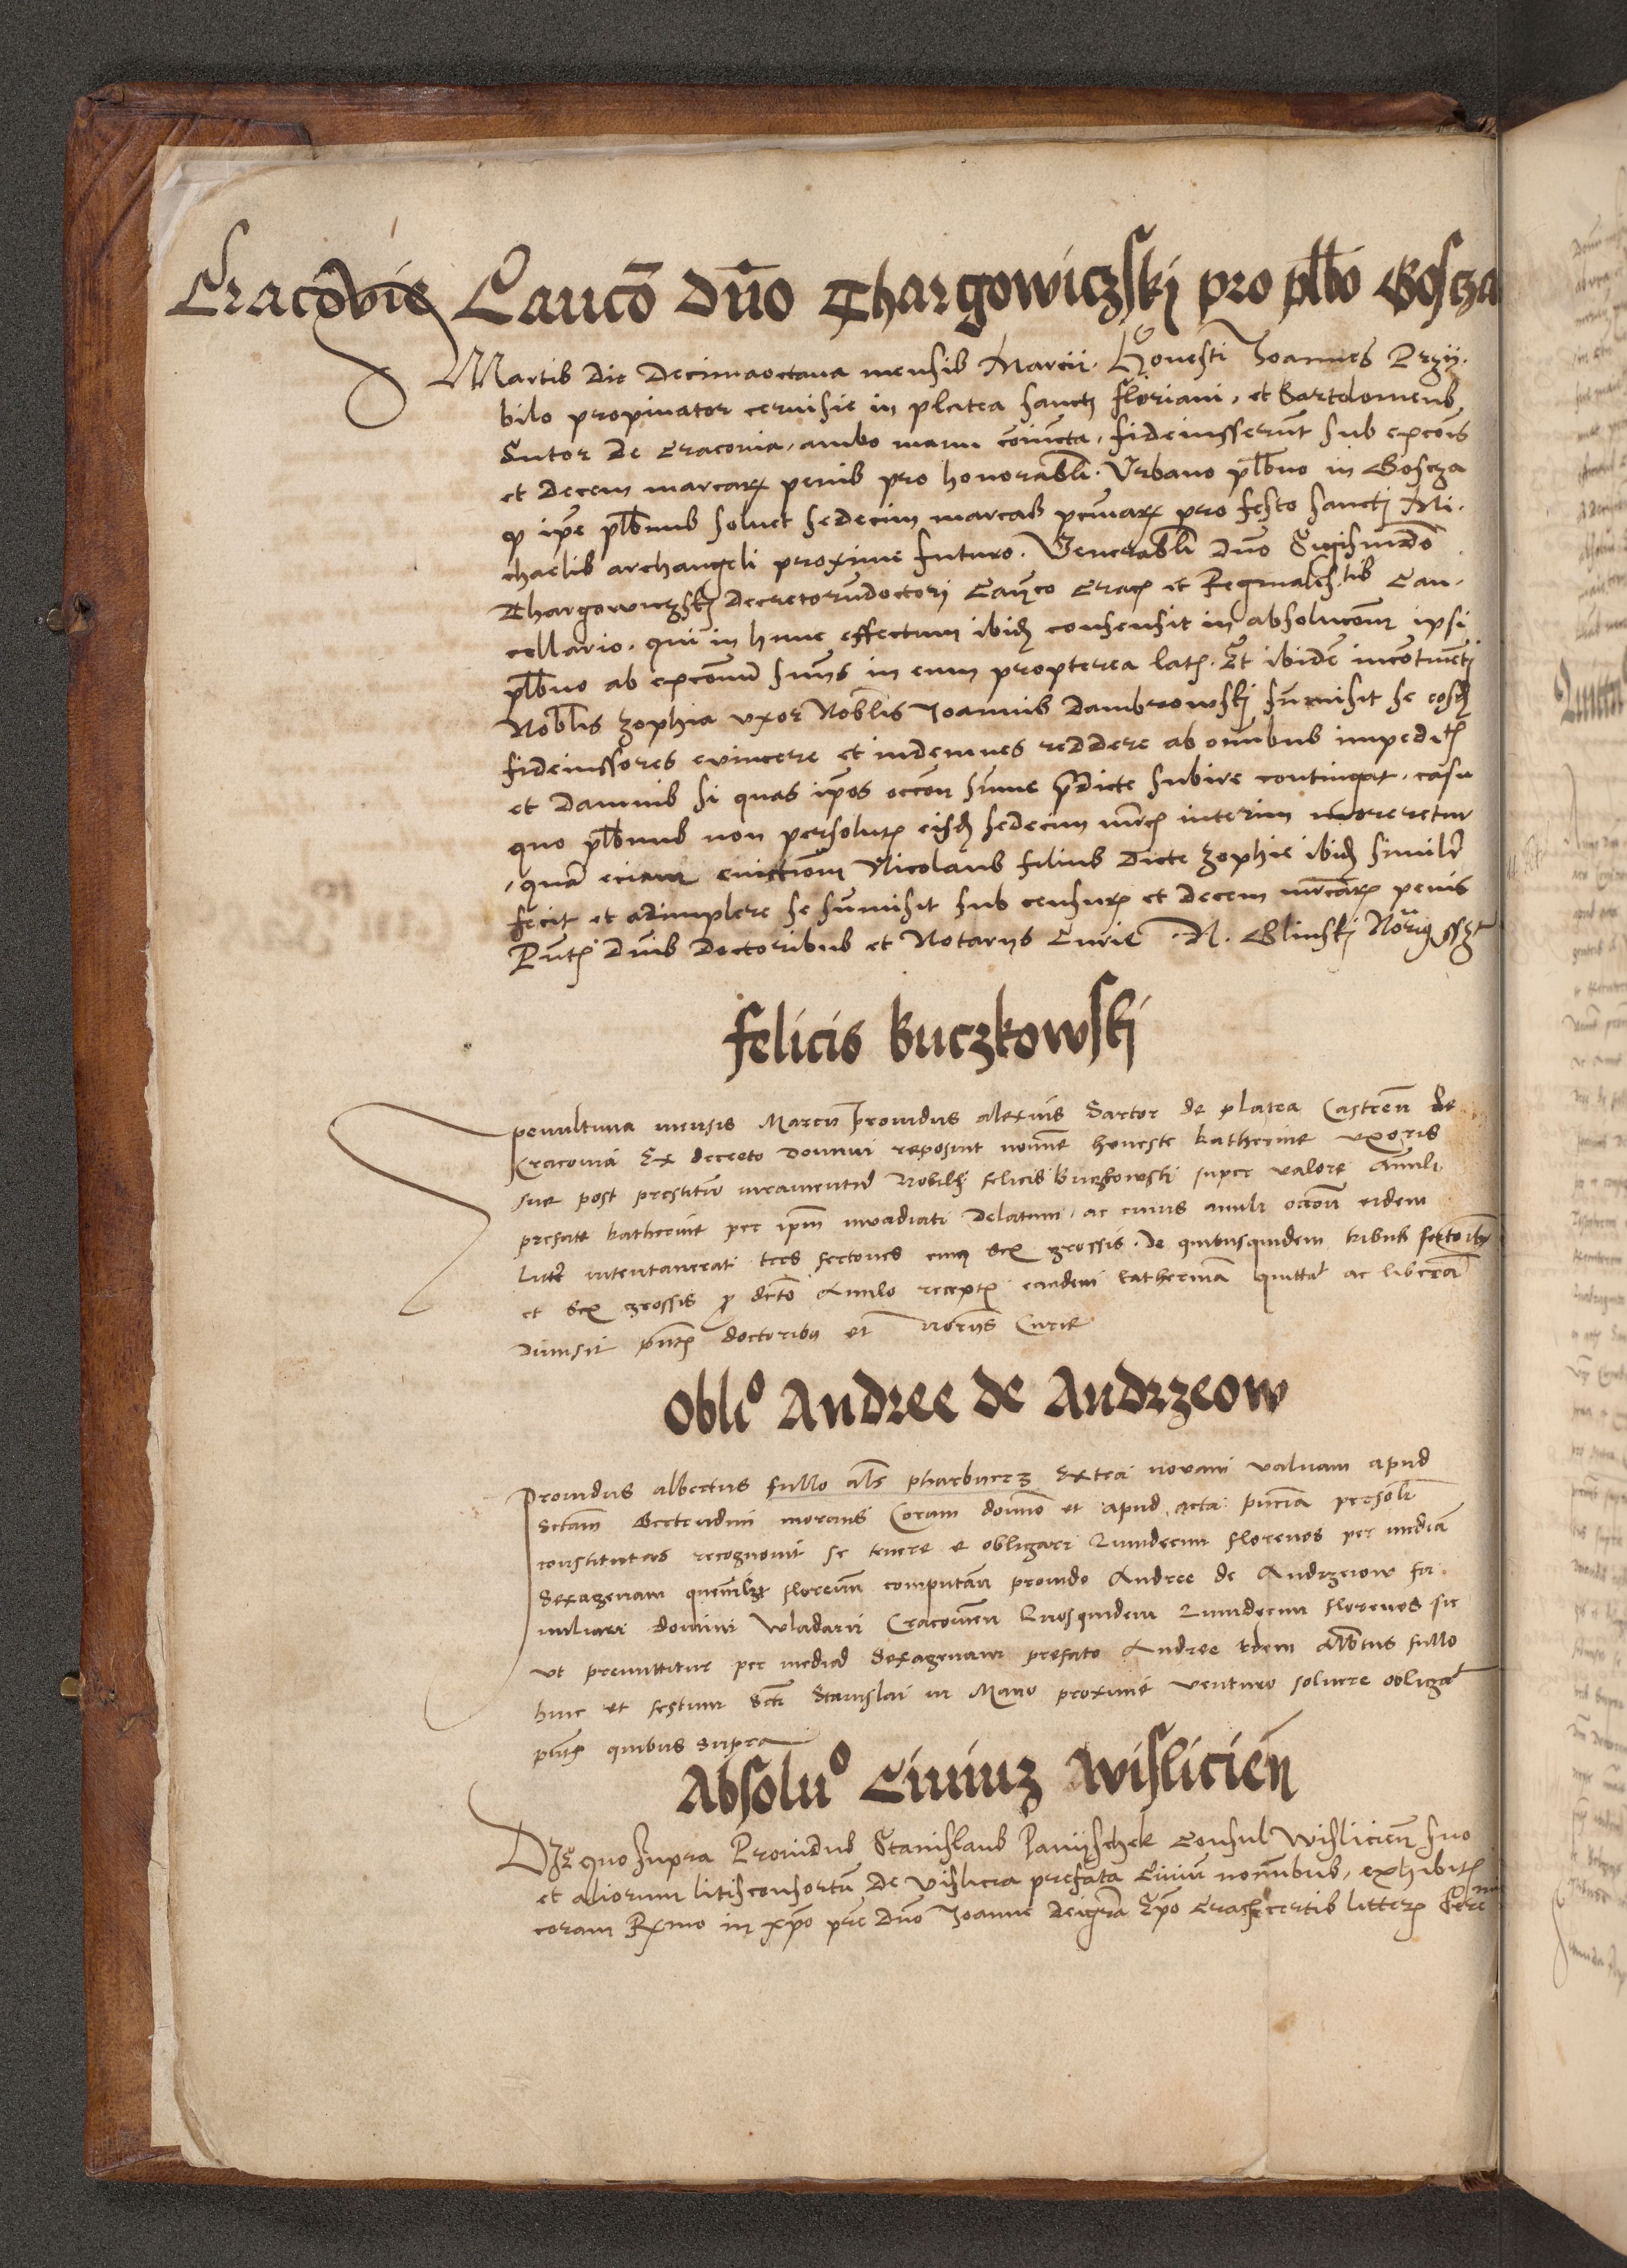 Cracovie Caucõ Dño Thargowiczskj pro plbo Goscza
Martis Die Decimaoctaua mensis Marcii. Honesti Joannes Przij.
bilo propinator ceruisie in platea sanctj floriani, et Bartolomeus
Sutor de Cracouia, ambo manu coniuncta, fideiusserunt sub excõis
et decem marcarum penis pro honorabli. Vrbano plbno in Goscza
q ipe plbnus soluet sedecim marcas pecuniarum pro festo sanctj Mi.
chaelis archangeli proxime futuro. Venerabli dno Sigismudo
Thargowiczskj decretorudoctorj Canco Crac et Reginalis tis Can.
cellario. qui in hunc effectum ibid consensit in absolucom ipsi
plbno ab excõnu suns in eum propterea lat. Et ibidē incontinentj
Nobl'is Zophia vxor Nobl'is Joannis Dambrowskj submisit se eosd
fideiussores euincere et indemnes reddere ab omnibus impedit
et damnis si quas ipos occõn sume pdicte subire contingat. casu
quo plbnus non persolut eisd sedecim mrc interim moreretur
, qua eciam euictiom Nicolaus filius dicte Zophie ibid similr
fecit et adimplere se sumisit sub censur et decem mrcar penis
Pnt Dnis doctoribus et Notarijs Curie. N. Glinskj Norius sszt
felicis Buczkowskj
penultima mensis Marcii prouidus alexius Sartor de platea Castren de
Cracouia Ex decreto domini reposuit nomine honeste katherine vxoris
sue post prestitu iuramentu Nobilis felicis buczkowskj super valore Annuli
prefate katherine per ipm inuadiati delatum, ac cuius anuli occõn eidem
liti intentauerati tres fertones cum sex grossis. de quibusquidem tribus fertoibus
et sex grossis p dcto Anulo recept eandem katherina quittat ac libera
dimisit pnt doctoribus et norijs Curie
Obli° Andree de Andrzeow
Prouidus albertus fullo als pharbarcz Extra nouam valuam apud
sctam Gertrudim morans Coram domino et apud acta pncia persolr
constitutus recognouit se tenere et obligari Quindecim florenos per media
Sexagenam quemlibet florenu computan prouido Andree de Andrzeow fa.
miliari domini wladarii Cracouien Quosquidem Quindecim florenos sic
vt premittitur per media Sexagenam prefato Andree Idem Albtus fullo
hinc et festum Scti Stanislai in Mayo proxime venturo soluere obligat
pnt quibus supra
Absolu° Ciuiuz Wisliciēn
Die quo supra Prouidus Stanislaus Panijschek Consul Wislicien suo
et aliorum litisconsortu de Vislicia prefata Ciuiu nominibus, exhibit
coram Rxmo in xpo pre dno Joanne deigra Epo Crac certis litteris Sere